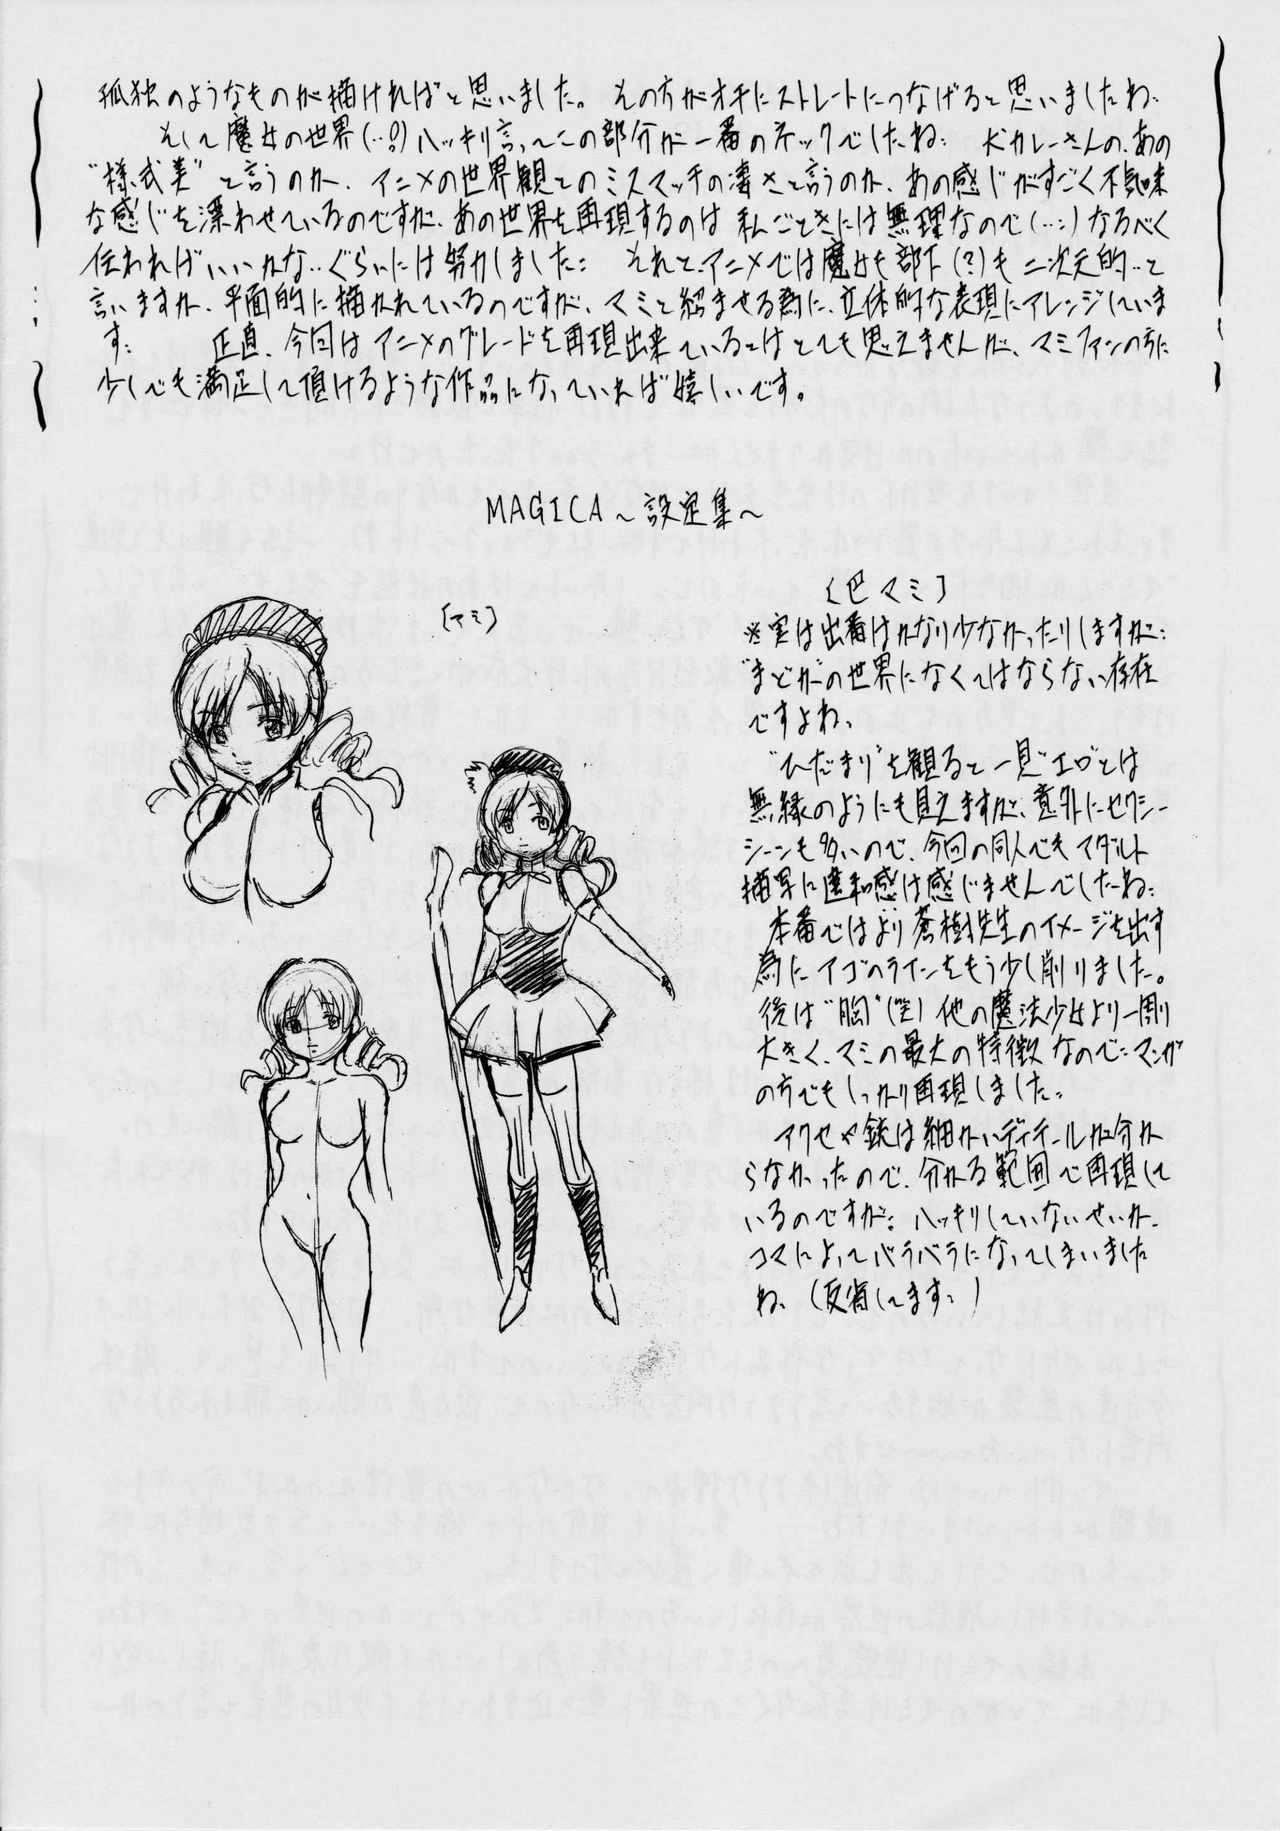 孤独のようなものが描ければと思いました。その方がオチにストレートにつなげると思いましたね、
そして魔女の世界(…!?)ハッキリ言ってこの部分が一番のネックでしたね: 犬カレーさんの、あの
"様式美"と言うのか、アニメの世界観とのミスマッチの凄さと言うのか、あの感じがすごく不気味
な感じを漂わせているのですが、あの世界を再現するのは私ごときには無理なので(…:)なるべく
伝わればいいかな…ぐらいには努力しました: それと、アニメでは魔女も部下(?)も二次元的…と
言いますか、平面的に描かれているのですが、マミと絡ませる為に、立体的な表現にアレンジしていま
す: 正直、今回はアニメのグレードを再現出来ているとはとても思えませんが、マミファンの方に
少しでも満足して頂けるような作品になっていれば嬉しいです。
MAGICA～設定集～
(マミ)
〔巴マミ〕
※実は出番はかなり少なかったりしますが:
"まどか"の世界になくてはならない存在
ですよね、
"ひだまり"を観ると一見"エロ"とは
無縁のようにも見えますが、意外にセクシー
シーンも多いので、今回の同人でもアダルト
描写に違和感は感じませんでしたね:
本番ではより蒼樹先生のイメージを出す
為にアゴのラインをもう少し削りました。
後は"胸"(笑)他の魔法少女より一廻り
大きく、マミの最大の特徴なので:マンガ
の方でもしっかり再現しました:
アクセや銃は細かいディテールが分か
らなかったので、分かる範囲で再現して
いるのですが: ハッキリしていないせいか、
コマによってバラバラになってしまいました
ね、(反省してます:)